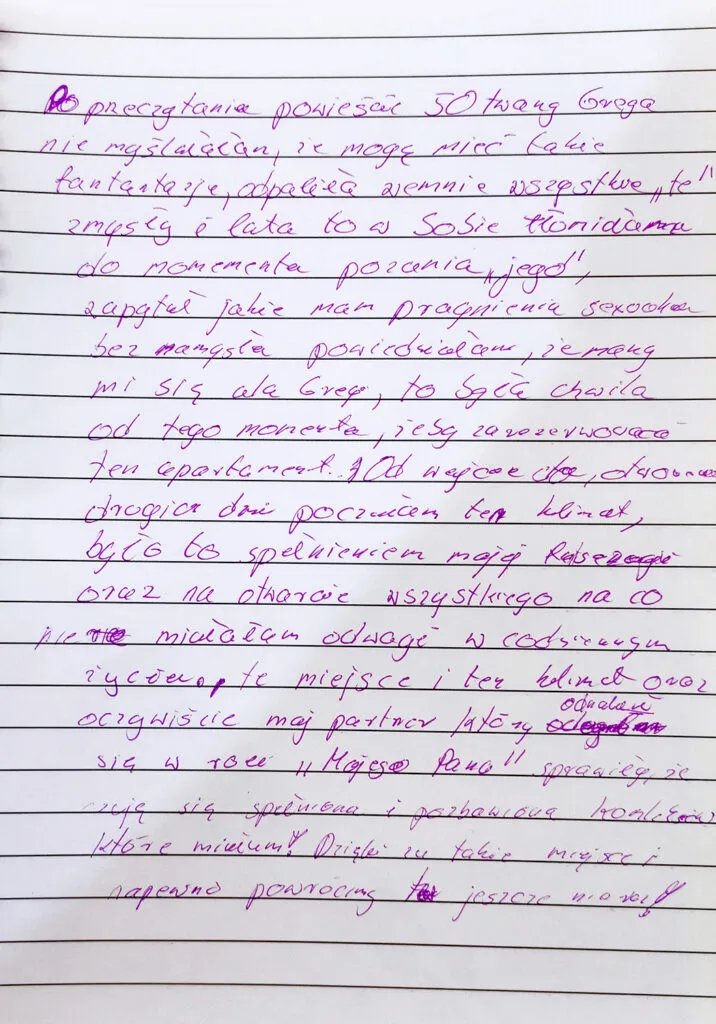 Po przeczytania powieśac 50 twang Grega
nie myślałałam, że mogę mieć takie
fantantazje, odpaliła wemnie wszystkie „te”
zmysły i lata to w sobie tłonidamm
do momementa pozania „jego”,
zapytał jakie mam pragnienia
bez namysła powiedziałam, że mang
mi się ala Grey, to była chwila
od tego momenta, żeby zarezerwować
ten apartament. Od wejście
drogich drzwi poczułam ten klimat,
było to spełnieniem mojej
oraz na otwarcie wszystkiego na co
nie miałałam odwagi w codziennym
życiu, te miejsce i ten klimat oraz
oczywiście mój partner który odnalazł
się w roli „Mojego Pana” sprawiły, że
czują się spełniona i pozbawiona
które miałam! Dzięki za takie miejsce i
napewno powrócimy tu jeszcze nie raz!